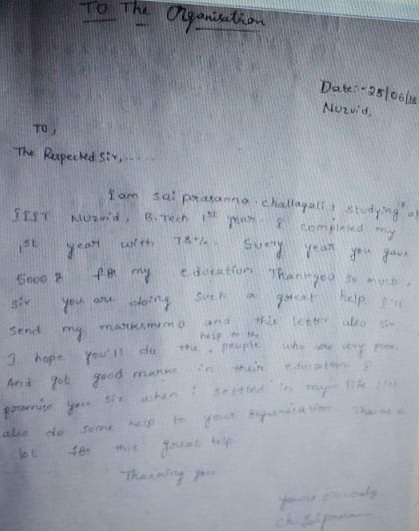 TO The Organisation
Date:- 25/06/18
Nuzvid,
TO,
The Respected Sir,.....
I am sai prasanna. challagali, studying at
IIIT Nuzvid, B.Tech 1st year. I completed my
1st year with 78%. Every year you gave
5000 ₹ for my education. Thankyou so much,
sir you are doing such a great help. I'll
send my marksmemo and this letter also sir.
I hope you'll do the help to the people who are very poor
And got good marks in their education I
promise you sir when i settled in my life i'll
also do some help to your organisation. Thanks a
lot for this great help.
Thanking you
yours sincerely